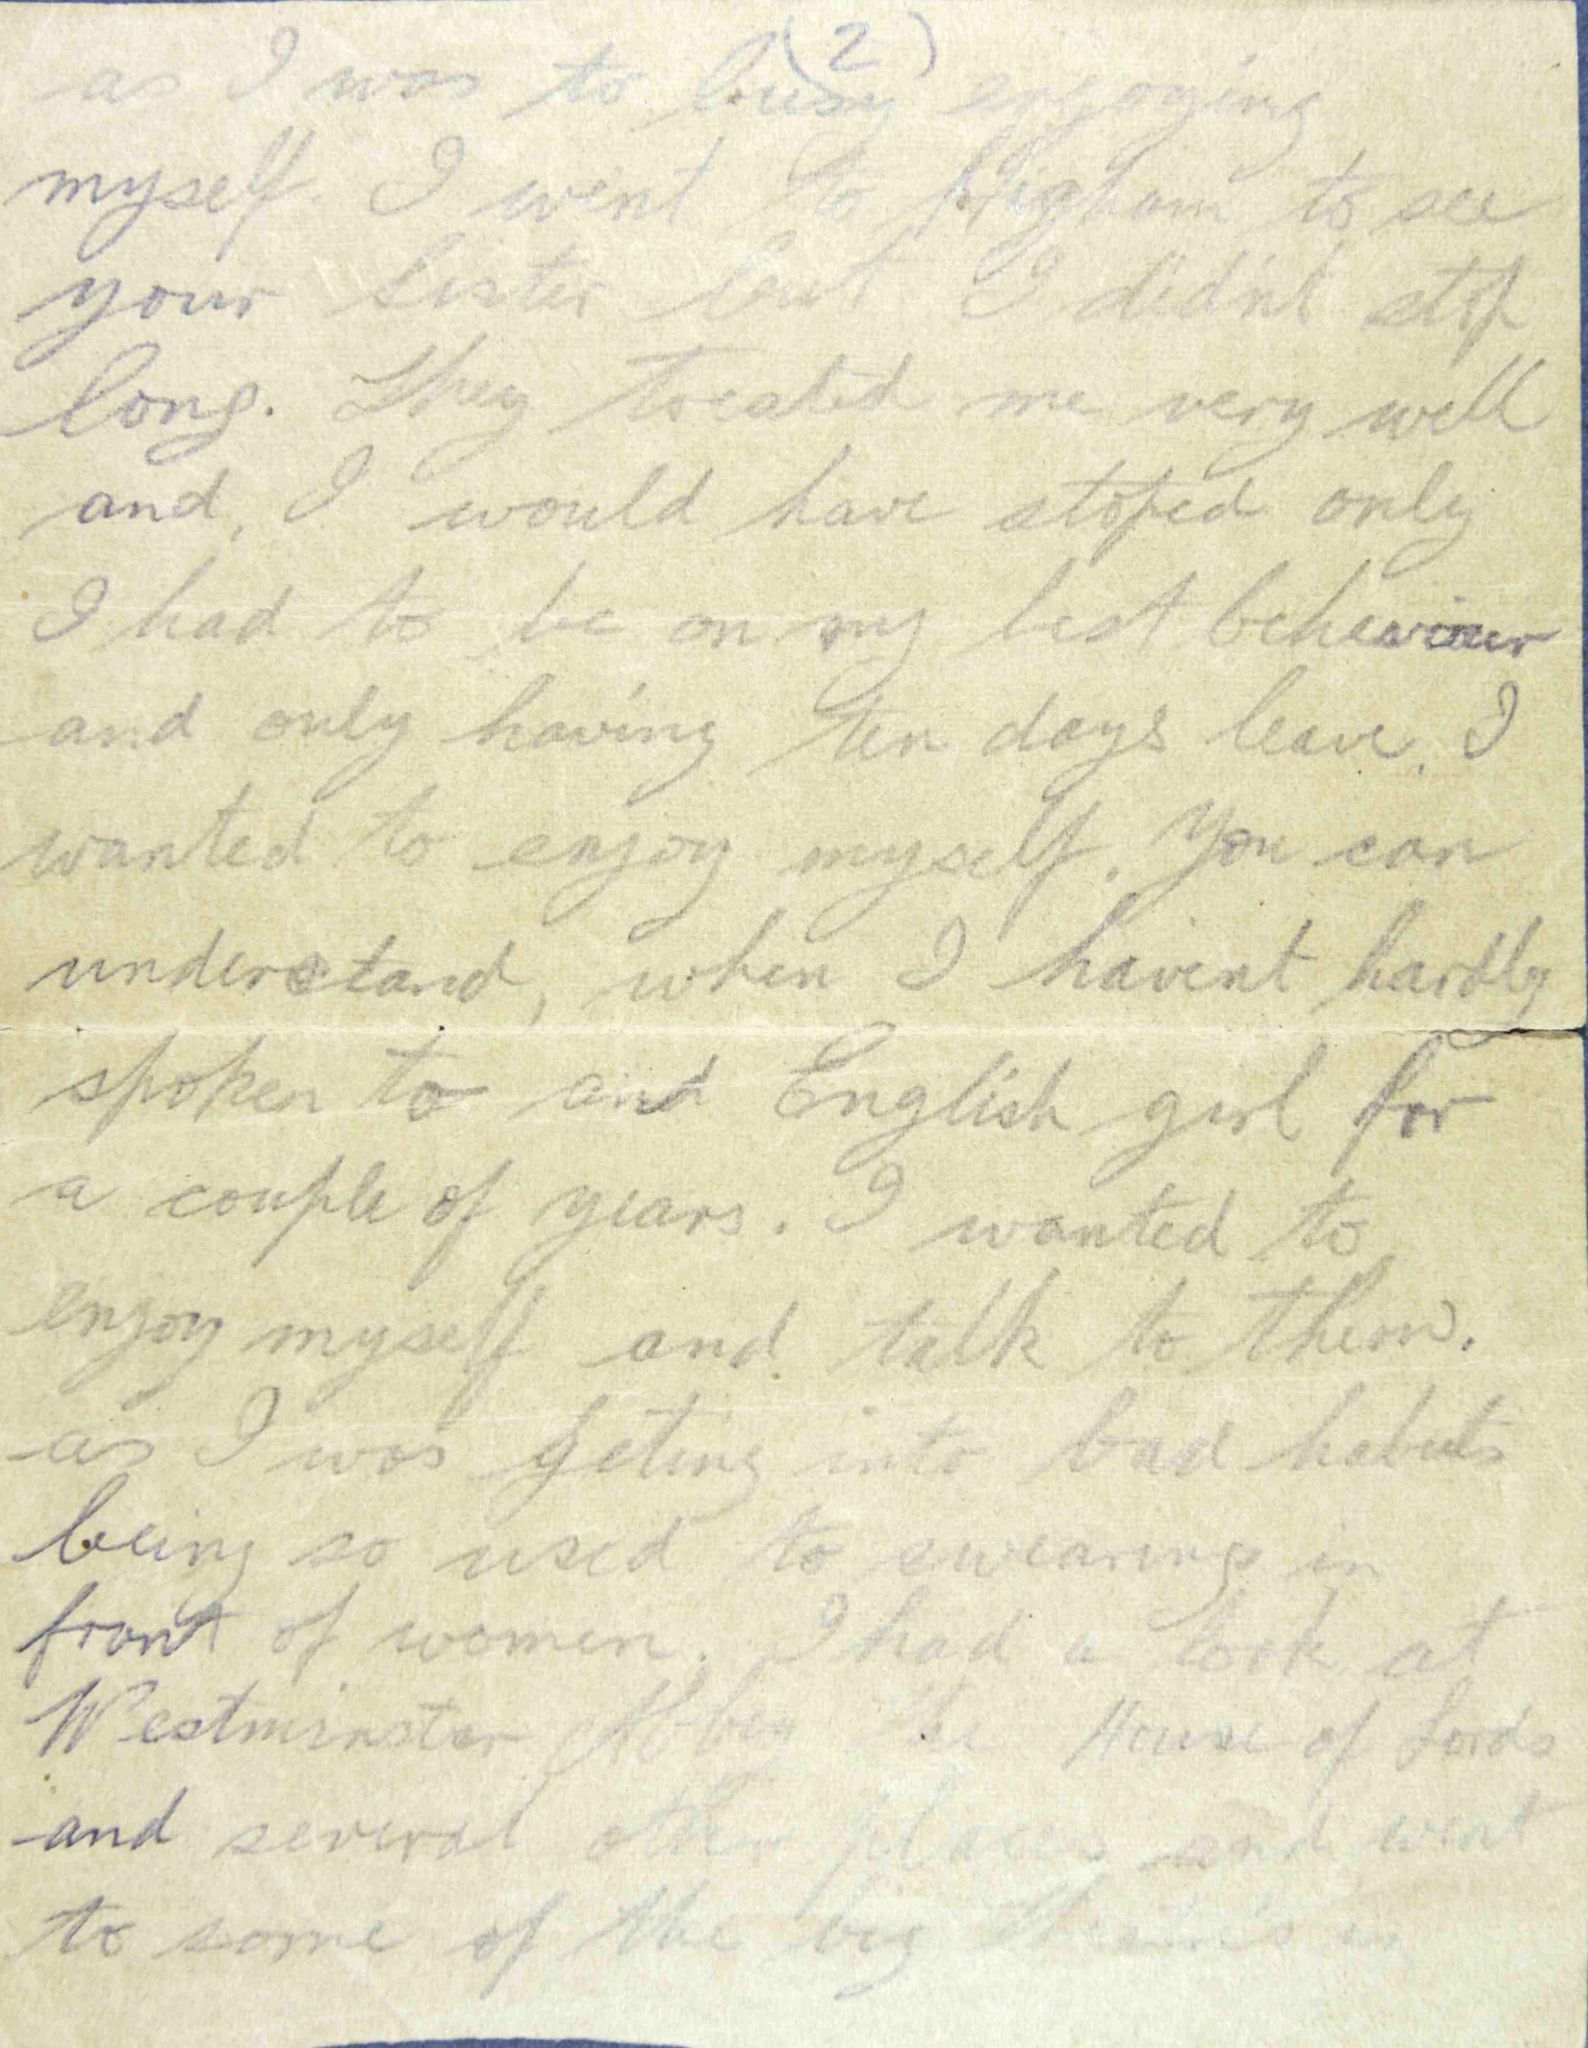 (2)
as I was to busy enjoying
myself. I went to to see
your Sister but I didn't stop
long. They treated me very well
and, I would have stoped only
I had to be on my best behaviour
and only having ten days leave, I
wanted to enjoy myself. You can
understand, when I havent hardly
spoken to and English girl for
a couple of years. I wanted to
enjoy myself and talk to them.
as I was geting into bad habits
being so used to swearing in
front of women. I had a look at
Westminster Abbey the House of Lords
and several other places and went
to some of the big